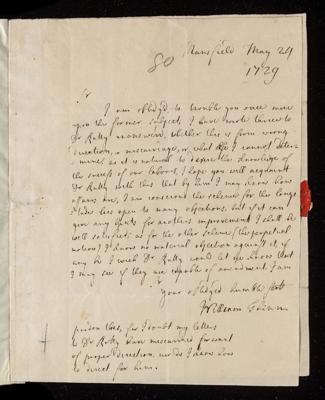 80 Mansfield May 24
1729
Sr
I am obliged to trouble you once more
upon the former subject, I have wrote thrice to
Dr Rutty unanswerd, whether this is from wrong
direction, a miscarriage, or, what else I cannot deter-
mine, as it is natural to desire the knowledge of
the success of our labours, I hope you will acquaint
Dr Rutty with this that by him I may know how
affairs are, I am conscious the scheme for the longi-
tudes lies open to many objections, but if it can
give any hints for another's improvement I shall be
well satisfied: as for the other scheme (the perpetual
motion) I know no material objection against it, if
any be I wish Dr Rutty would let me know that
I may see if they are capable of amendment. I am
Your obliged humble
William
pardon this, for I doubt my letters
to Dr Rutty have miscarried for want
of proper direction, nor do I know how
to direct for him.